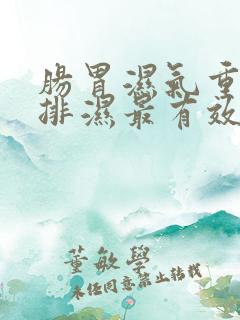 腸胃濕氣重
排濕最有效
董敏學
未經同意禁止轉載